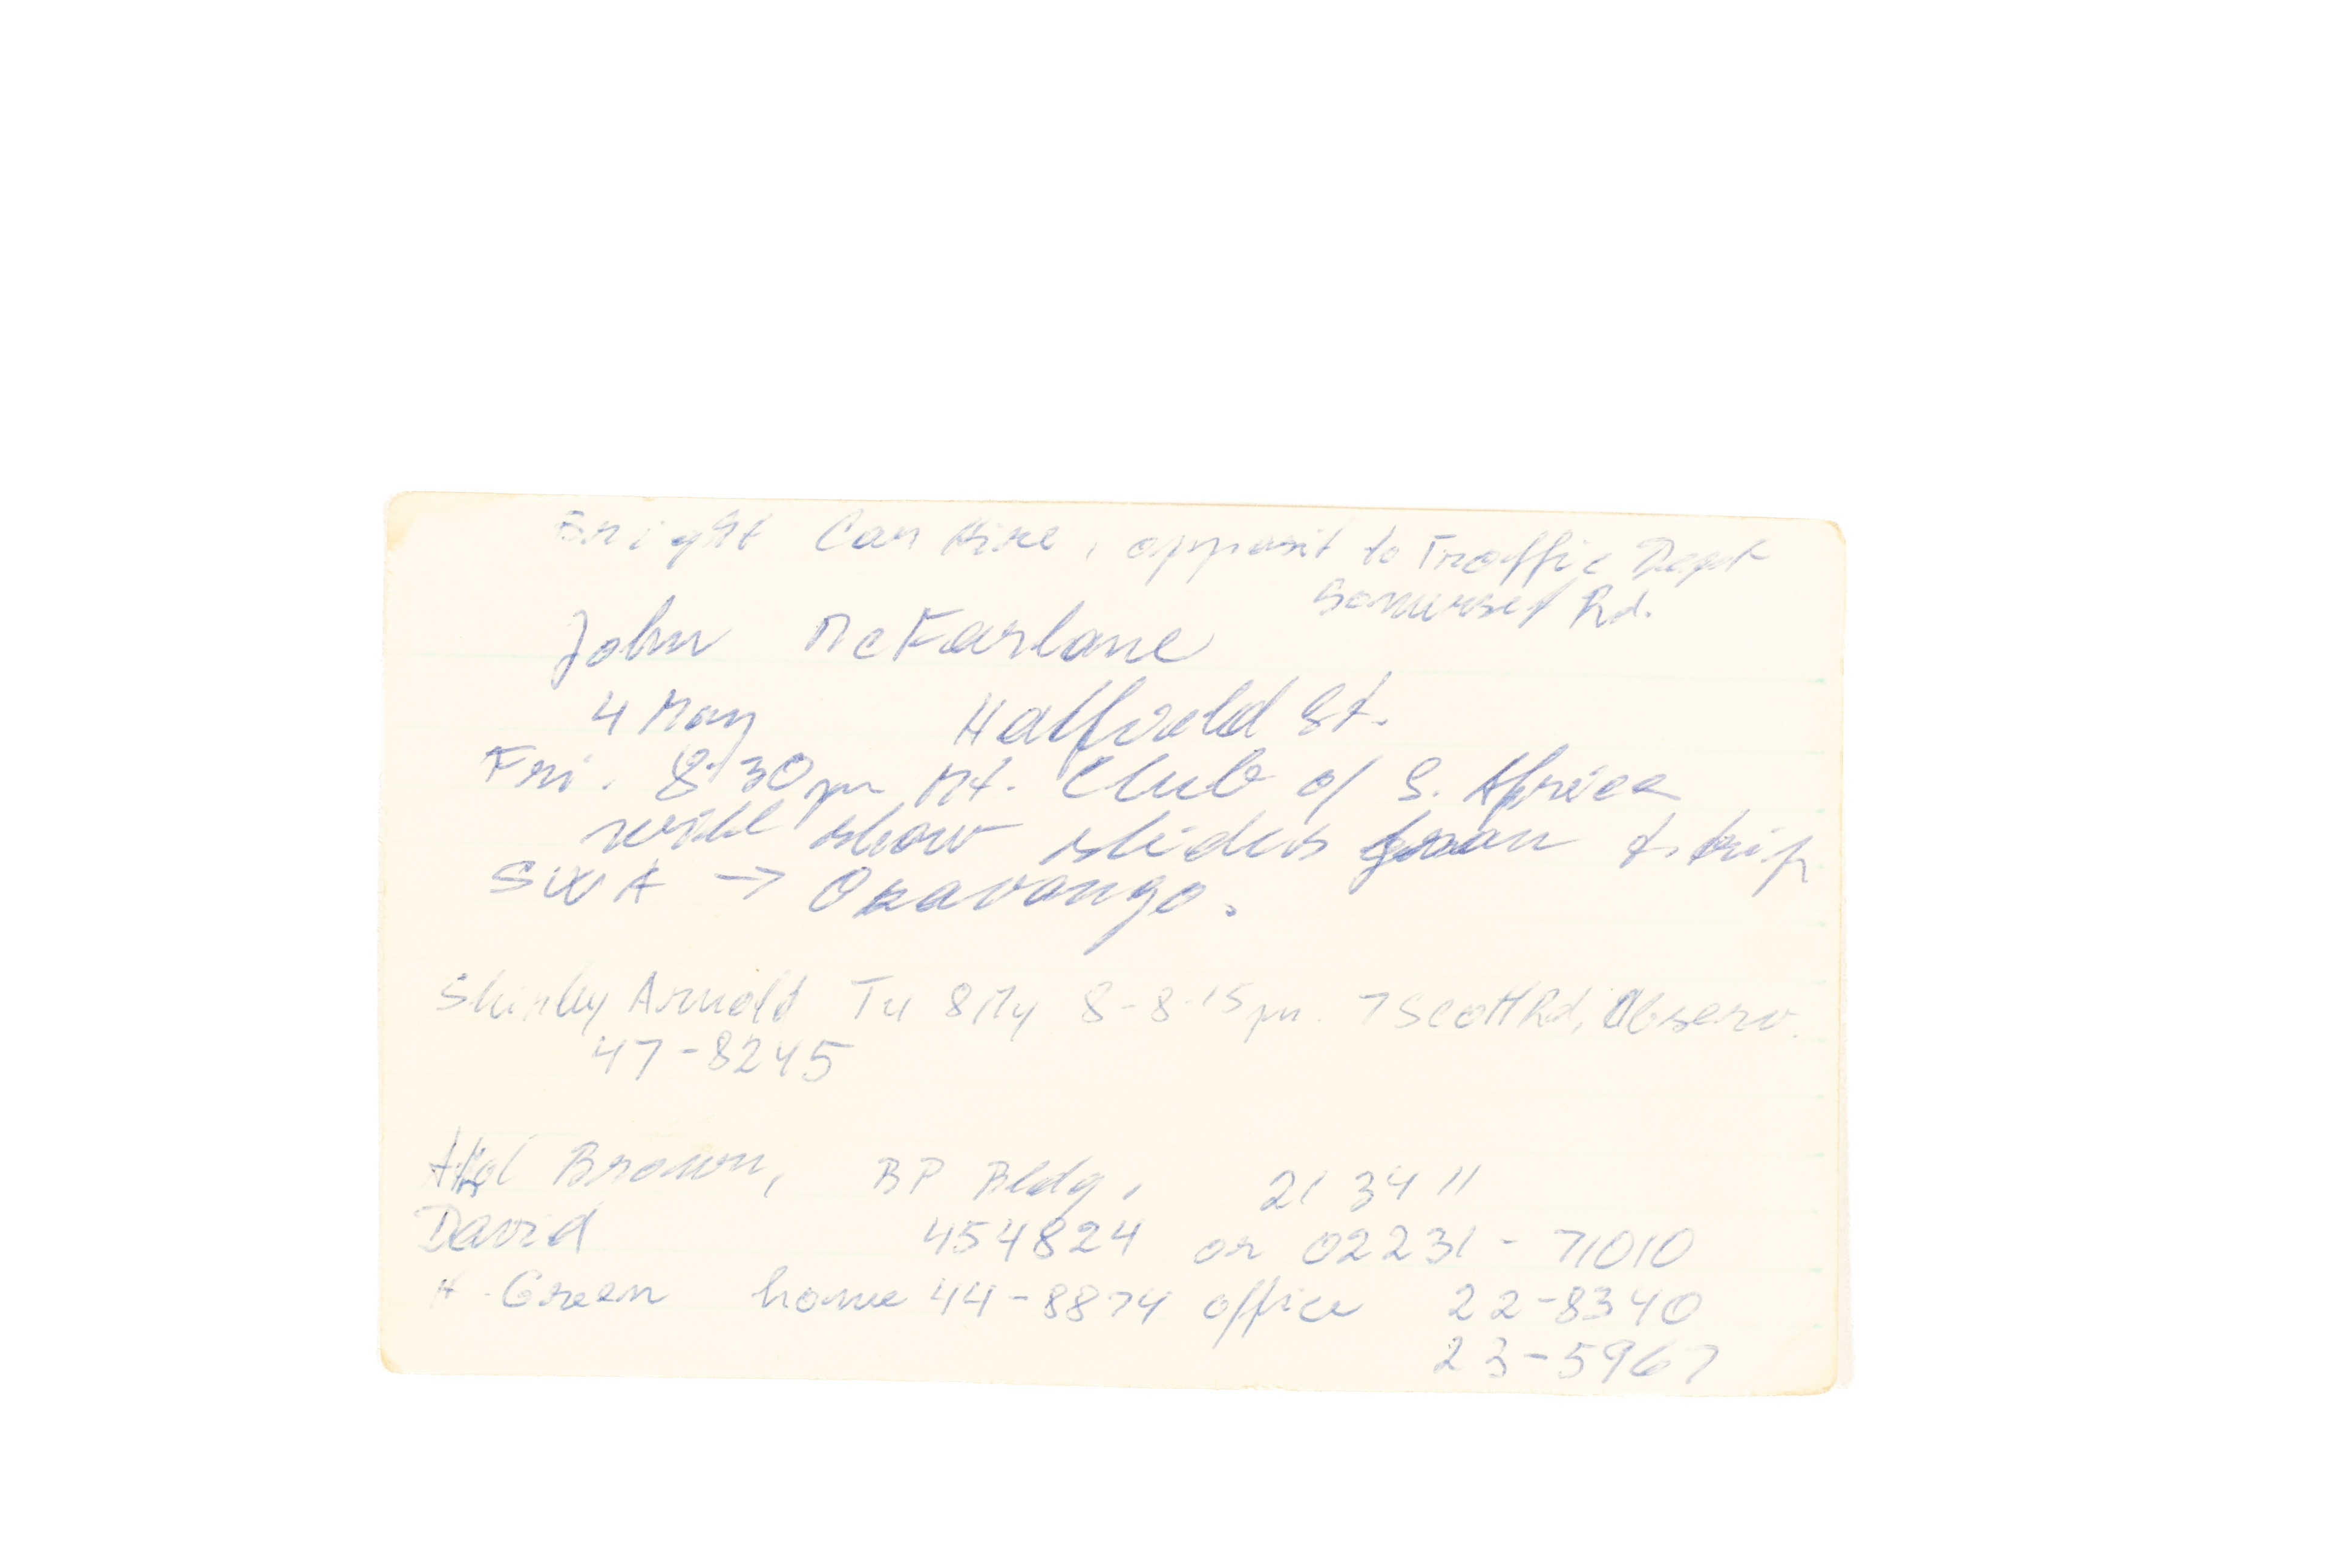 Bright Car Hire, opposit to Traffic Dept
Somerset Rd.
John McFarlane
4 May Hatfield St.
Fri. 8:30pm Mt. Club of S. Africa
will show slides from trip
SWA → Okavango.
Shirley Arnold Tu 8My 8-8:15pm. 7 Scott Rd, Observ.
47-8245
Brown, BP Bldg, 21 34 11
David 454824 or 02231-71010
H. Green home 44-8874 office 22-8340
23-5967